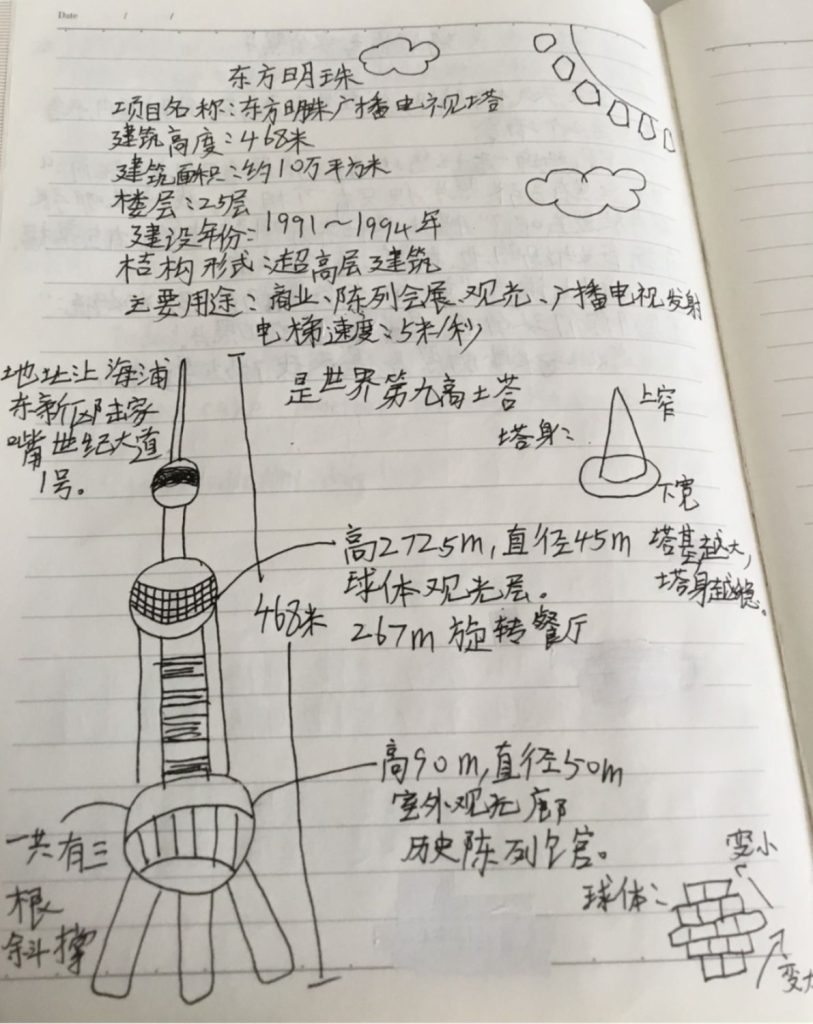 Date / /
东方明珠
项目名称:东方明珠广播电视塔
建筑高度:468米
建筑面积:约10万平方米
楼层:25层
建设年份:1991~1994年
结构形式:超高层建筑
主要用途:商业、陈列会展、观光、广播电视发射
电梯速度:5米/秒
是世界第九高塔
地址上海浦
东新区陆家
嘴世纪大道
1号。
塔身:
上窄
下宽
塔基越大,
塔身越稳。
高272.5m,直径45m
球体观光层。
267m旋转餐厅
468米
高90m,直径50m
室外观光廊
历史陈列馆。
一共有三
根
斜撑
球体:
变小
变大